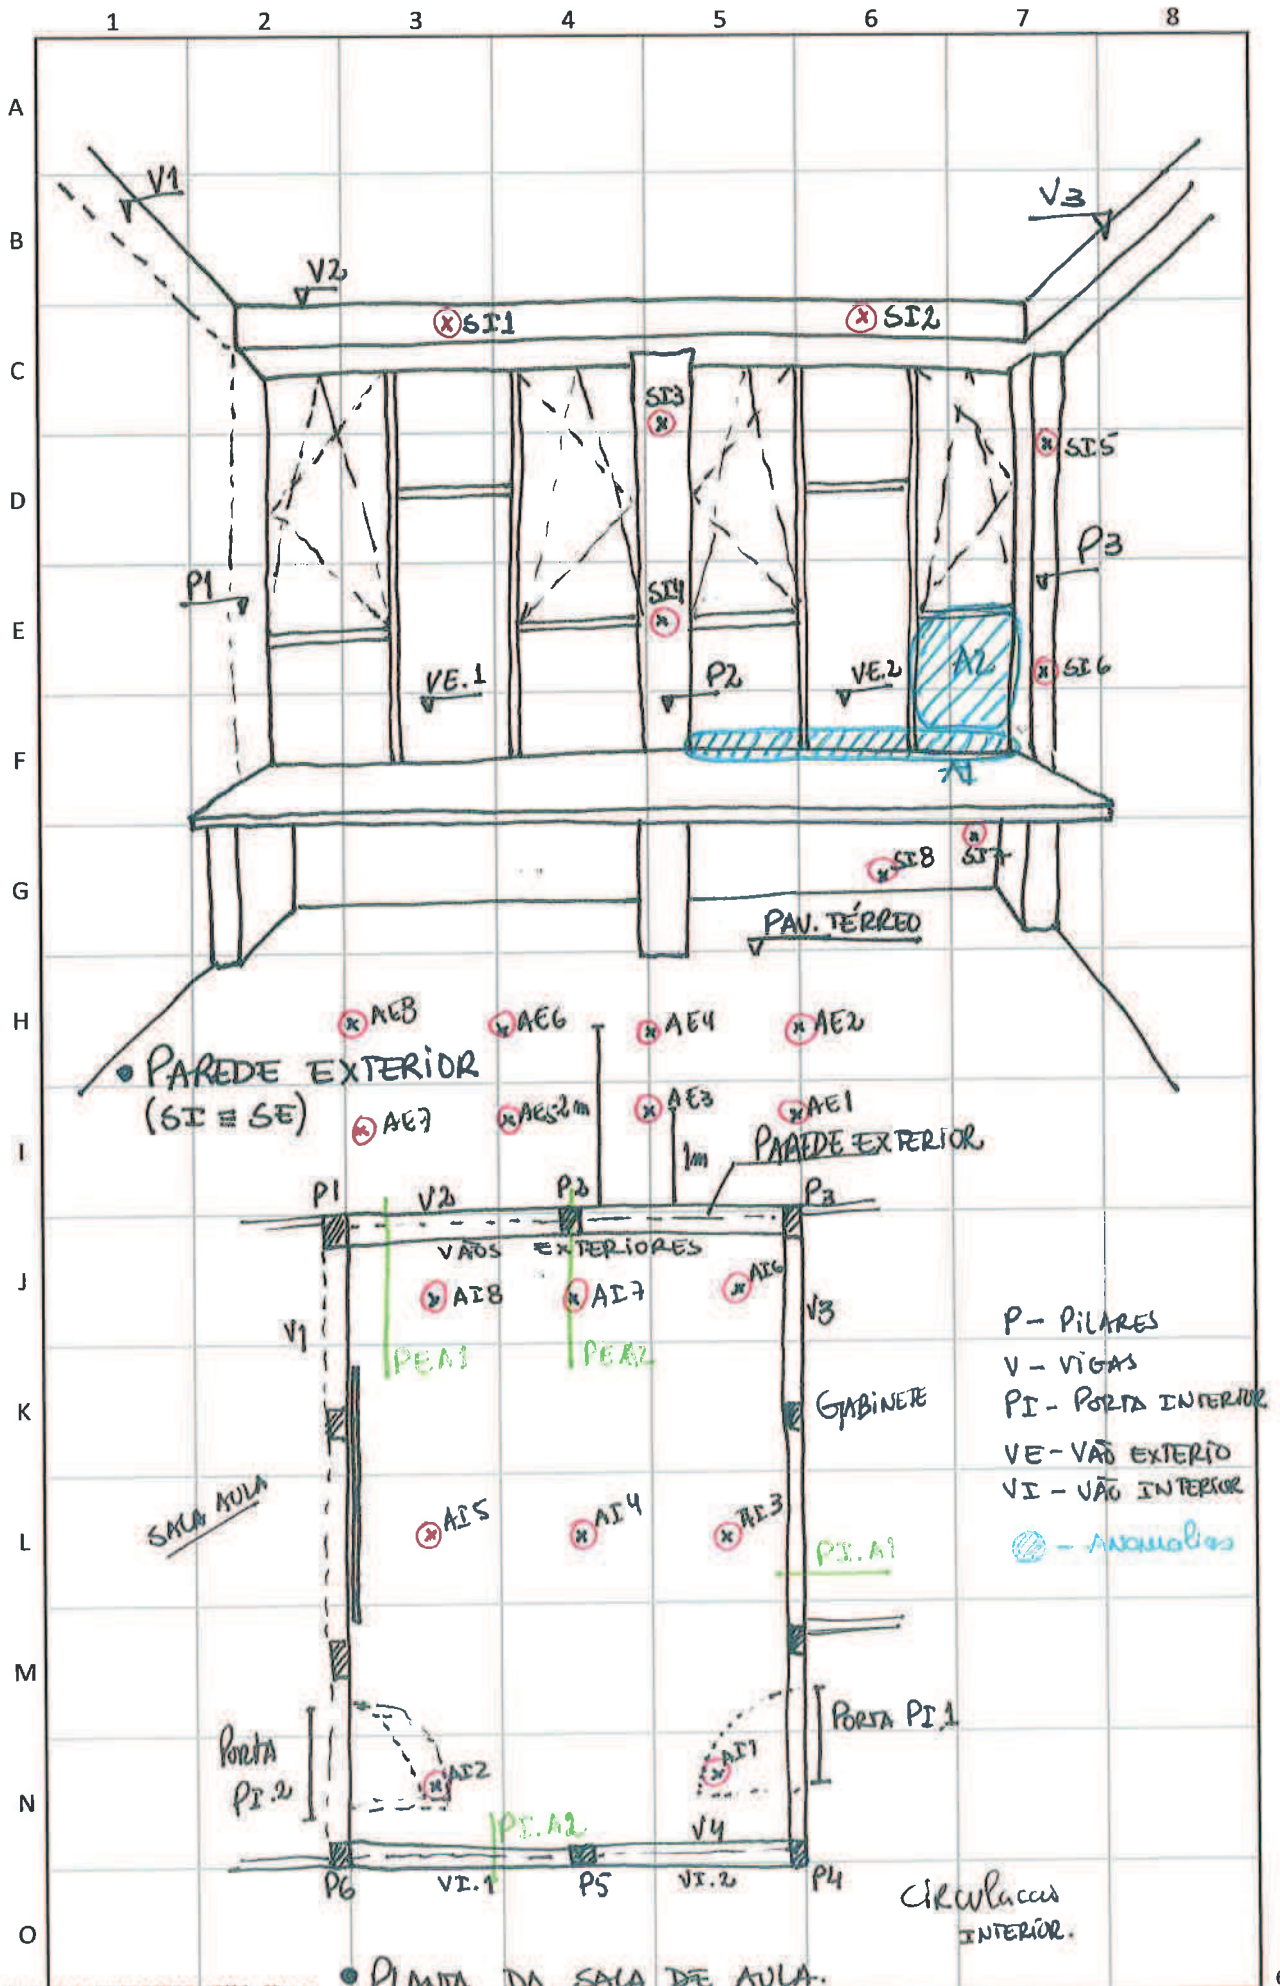 1 2 3 4 5 6 7 8
A
V1
V3
B
V2
SI1
SI2
C
SI3
SI5
D
P3
P1
SI4
E
A2
SI6
VE.1
P2
VE.2
F
A1
SI8
SI7
G
PAV. TÉRREO
H
AE8
AE6
AE4
AE2
• PAREDE EXTERIOR
(SI ≡ SE)
AE7
AE5
2m
AE3
AE1
I
1m
PAREDE EXTERIOR
P1
V2
P2
P3
VÃOS EXTERIORES
J
AI8
AI7
AI6
V1
V3
PEA1
PEA2
P - PILARES
V - VIGAS
PI - PORTA INTERIOR
VE - VÃO EXTERIO
VI - VÃO INTERIOR
- Anomalias
K
GABINETE
SALA AULA
L
AI5
AI4
AI3
PI.A1
M
PORTA PI.1
PORTA
PI.2
AI2
AI1
N
PI.A2
V4
P6
VI.1
P5
VI.2
P4
CIRCULACAO
INTERIOR.
O
• PLANTA DA SALA DE AULA.